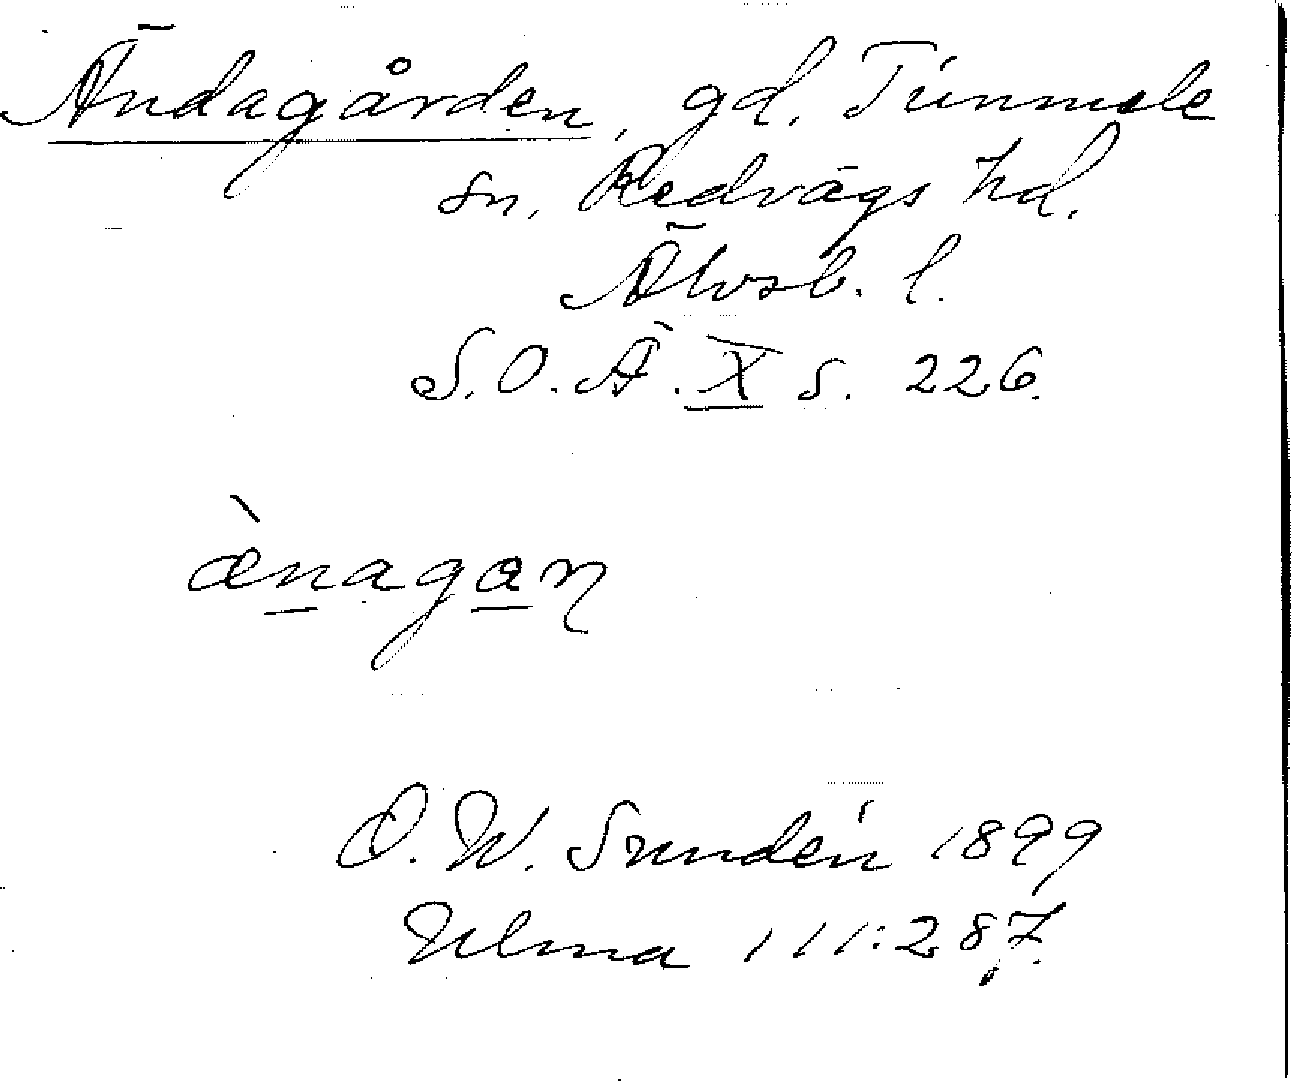 Ändagården, gd. Timmele
sn, Redvägs hd.
Älvsb. l.
S. O. Ä. X s. 226.
ænagan
D. W. Sundén 1899
Ulma 111:287.